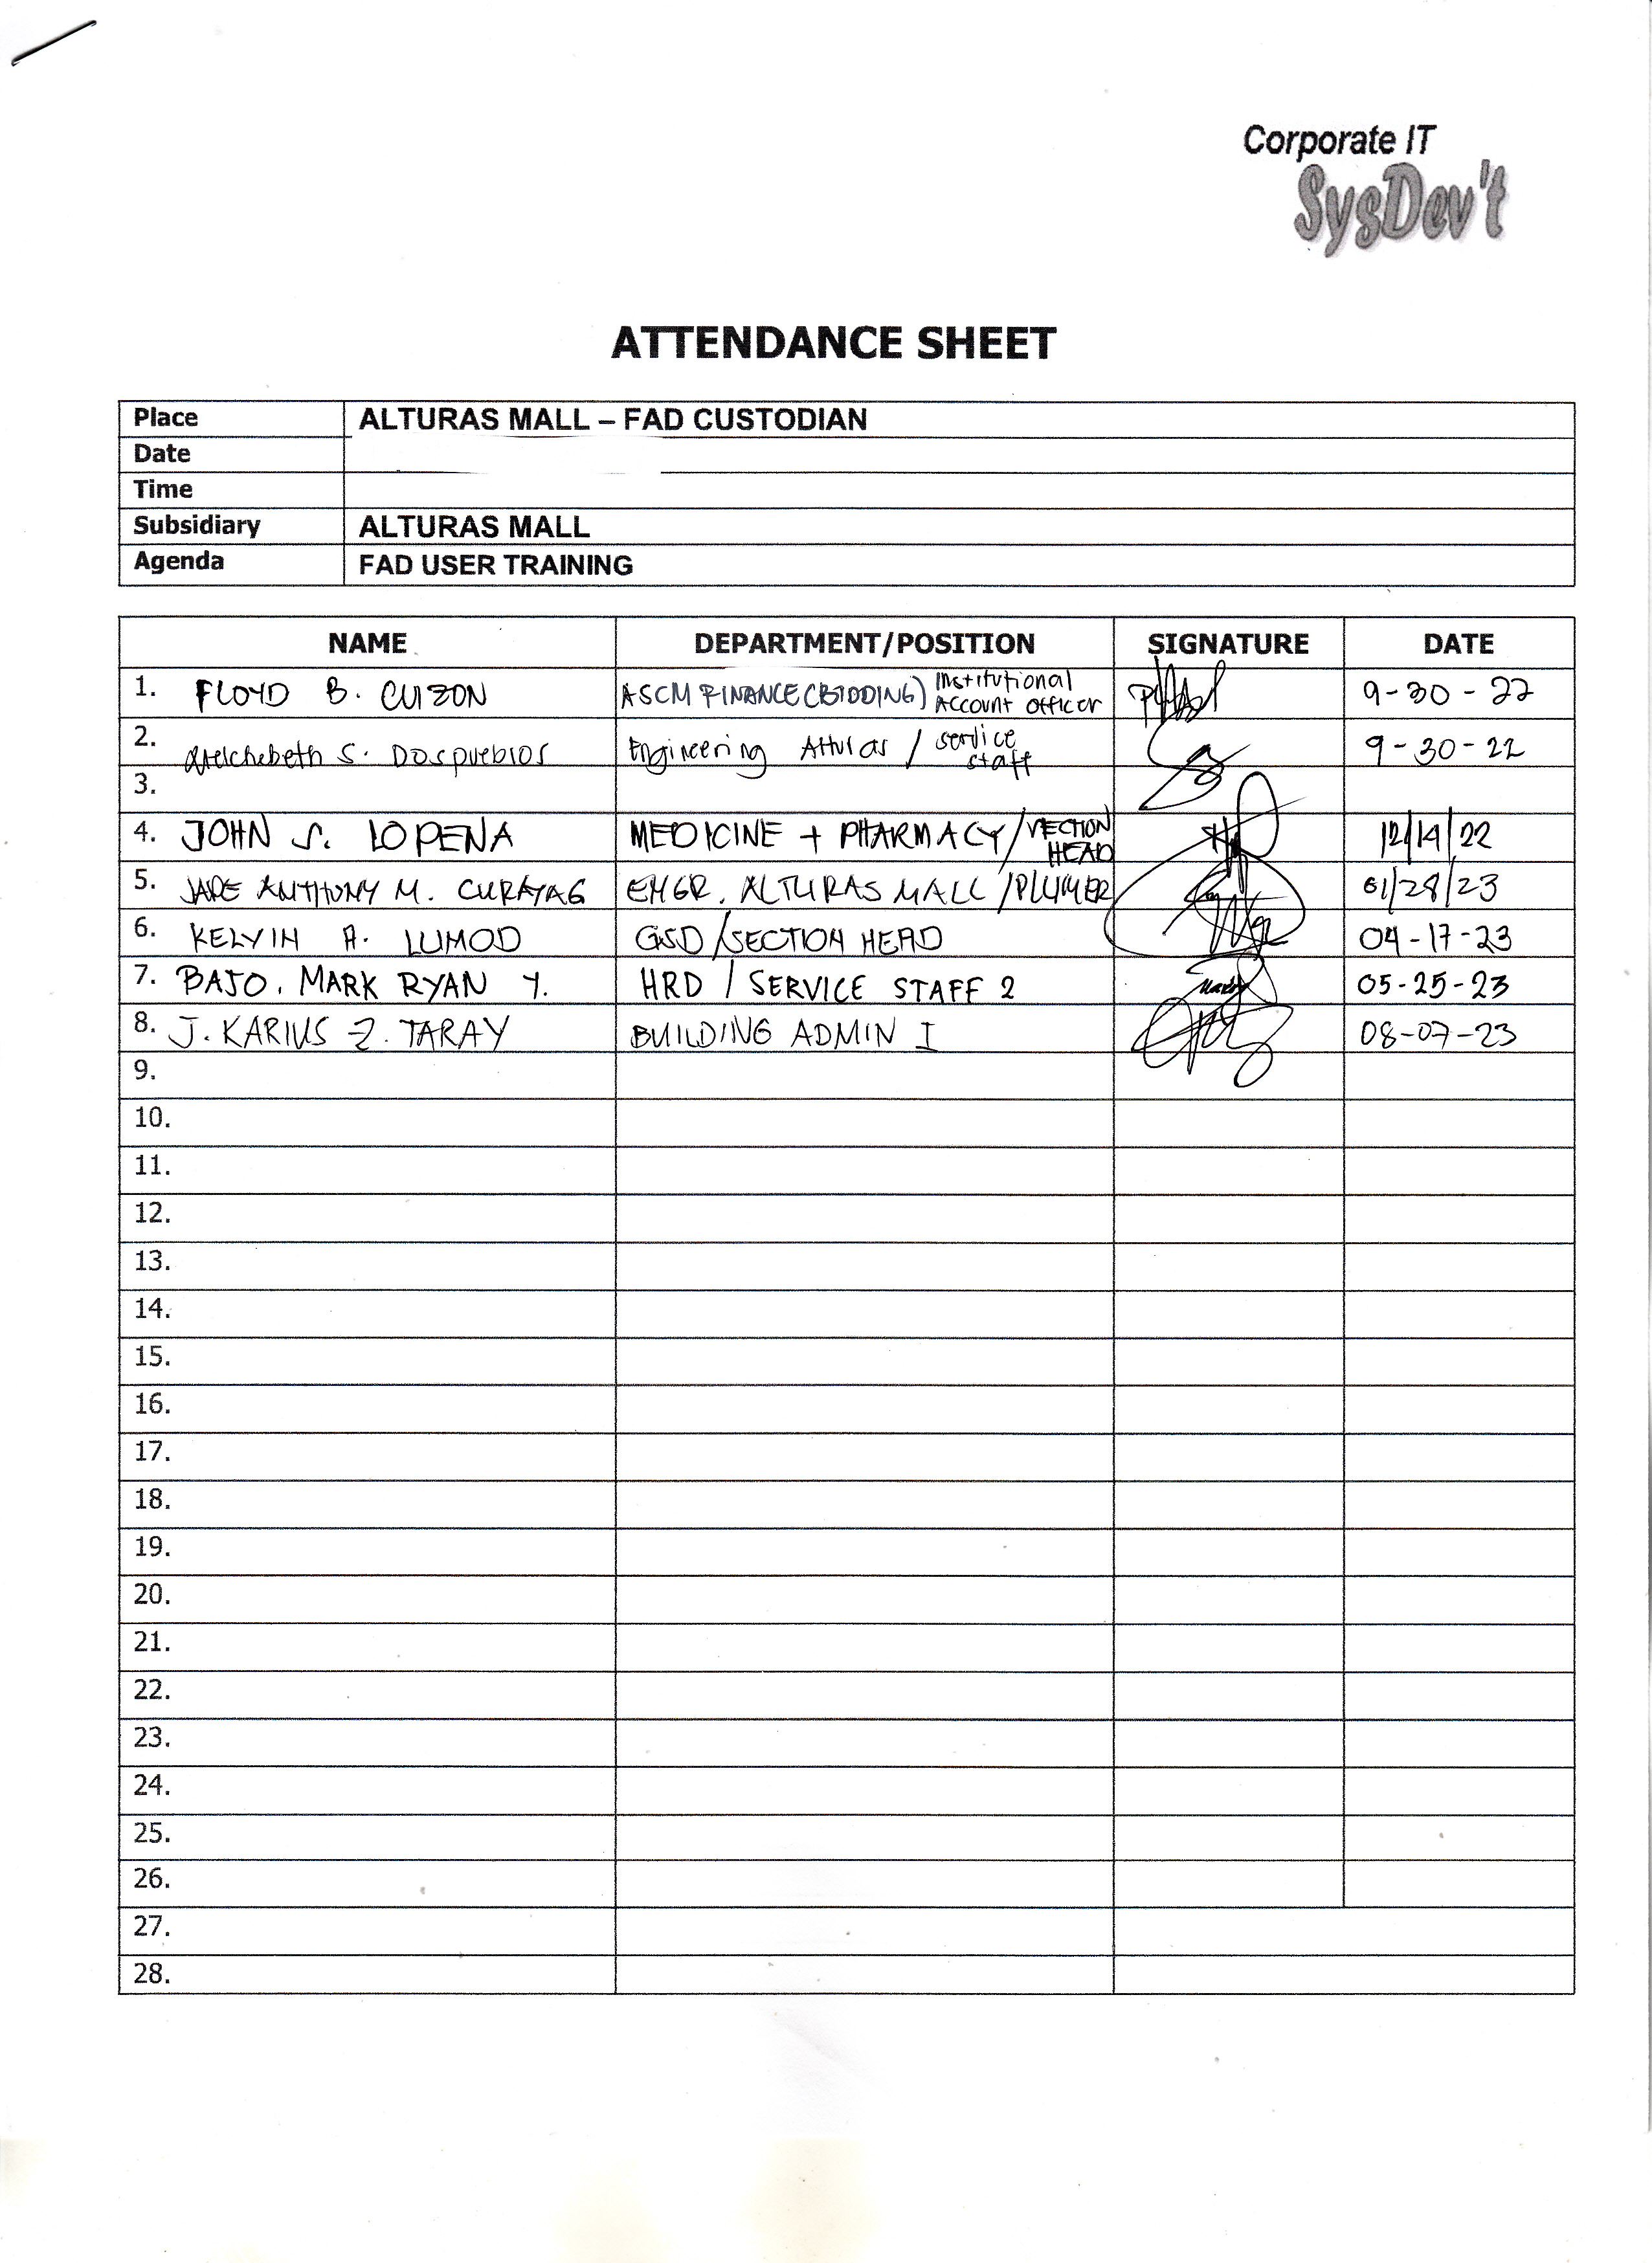 Corporate IT
SysDev't
ATTENDANCE SHEET
Place ALTURAS MALL – FAD CUSTODIAN
Date
Time
Subsidiary ALTURAS MALL
Agenda FAD USER TRAINING
NAME DEPARTMENT/POSITION SIGNATURE DATE
1. FLOYD B. CUIZON ASCM FINANCE (BIDDING) Institutional Account Officer 9-30-22
2. S. Dospueblos Engineering Alturas / Service staff 9-30-22
3.
4. JOHN S. LOPENA MEDICINE + PHARMACY/SECTION HEAD 12/14/22
5. JADE ANTHONY M. CURAYAG ENGR. ALTURAS MALL /PLUMER 01/28/23
6. KELVIN A. LUMOD GSD/SECTION HEAD 04-17-23
7. BAJO, MARK RYAN Y. HRD / SERVICE STAFF 2 05-25-23
8. J. KARIUS Z. TARAY BUILDING ADMIN I 08-07-23
9.
10.
11.
12.
13.
14.
15.
16.
17.
18.
19.
20.
21.
22.
23.
24.
25.
26.
27.
28.